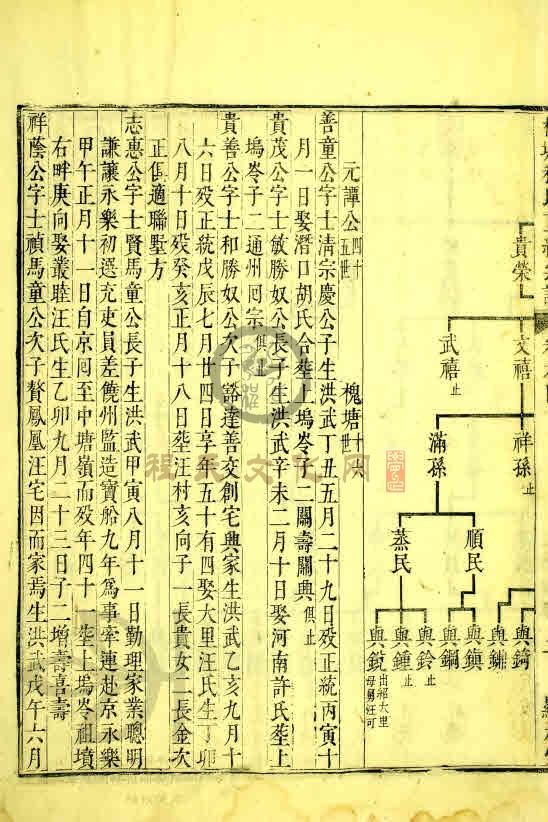 貴榮
文禧
武禧 止
祥孫 止
滿孫
順民
蒸民
與錡
與鏽
與鎮
與鋼
與鈴 止
與鍾 止
與鋭 出紹大里母舅汪可
元譚公 四十五世 槐塘 十六世
善童公字士清宗慶公子生洪武丁丑五月二十九日歿正統丙寅十
月一日娶潛口胡氏合塟上塢岺子二關壽關與 俱止
貴茂公字士敏勝奴公長子生洪武辛未二月十日娶河南許氏塟上
塢岺子二通州囘宗 俱止
貴善公字士和勝奴公次子谽達善交創宅興家生洪武乙亥九月十
六日歿正統戊辰七月廿四日享年五十有四娶大里汪氏生丁卯
八月十日歿癸亥正月十八日塟汪村亥向子一長貴女二長金次
正俱適聯墅方
志惠公字士賢馬童公長子生洪武甲寅八月十一日勤理家業聰明
謙讓永樂初選充吏員差饒州監造寶船九年為事牽連赴京永樂
甲午正月十一日自京囘至中塘嶺而歿年四十一塟上塢岺祖墳
右畔庚向娶叢睦汪氏生乙卯九月二十三日子二增壽喜壽
祥蔭公字士禎馬童公次子贅鳳凰汪宅因而家焉生洪武戊午六月